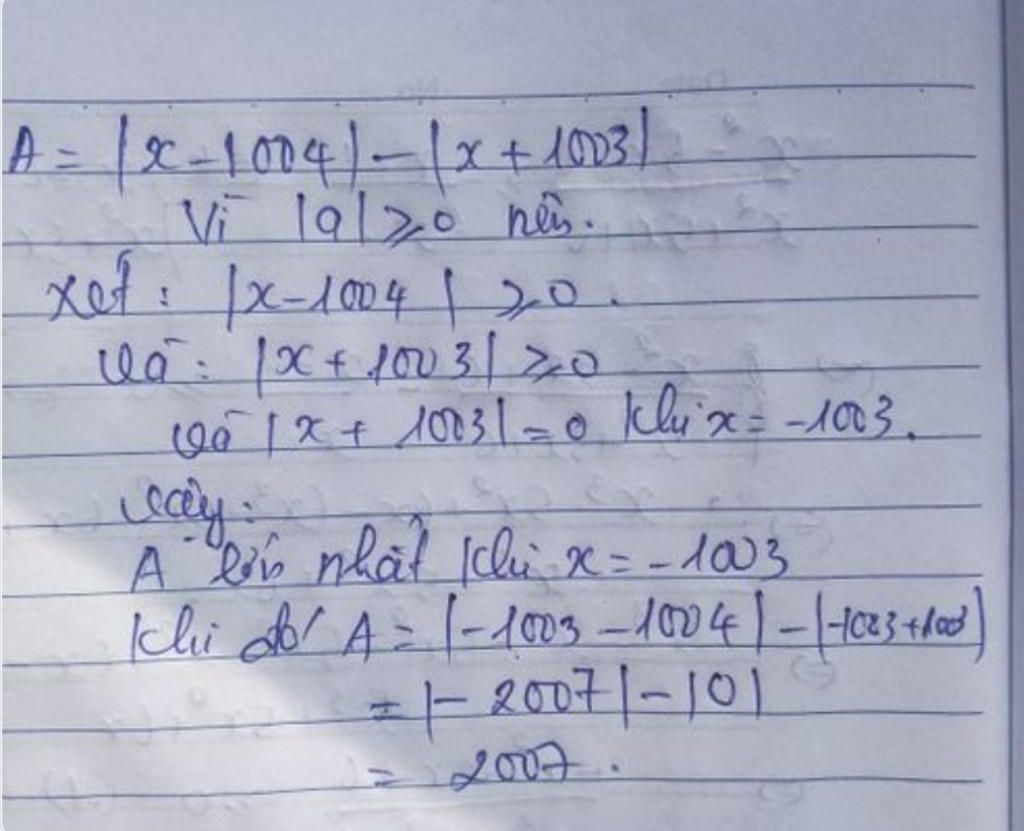 A = |x - 1004| - |x + 1003|
Vì |a| ⩾ 0 nên.
Xét: |x - 1004| ⩾ 0.
Và: |x + 1003| ⩾ 0
Và |x + 1003| = 0 khi x = -1003.
Vậy:
A lớn nhất khi x = -1003
Khi đó A = |-1003 - 1004| - |-1003 + 1003|
= |-2007| - |0|
= 2007.